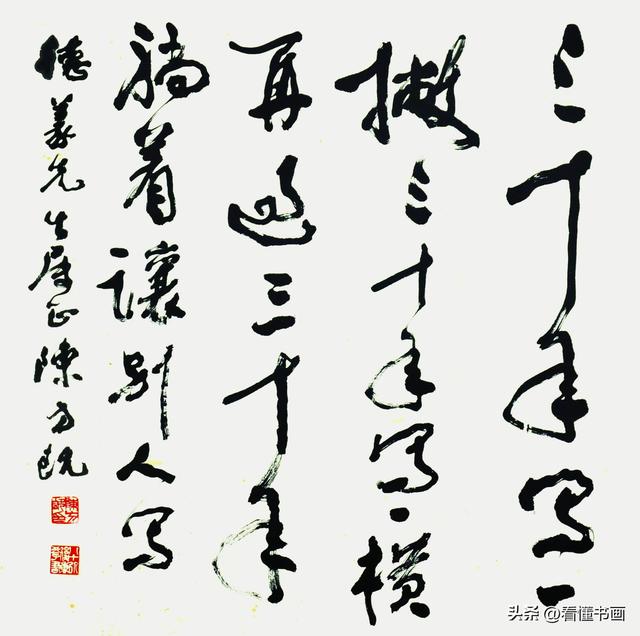 三十年写一
撇三十年写一横
再過三十年
躺着讓别人写
德義先生属正陳方既
头条 @看懂书画